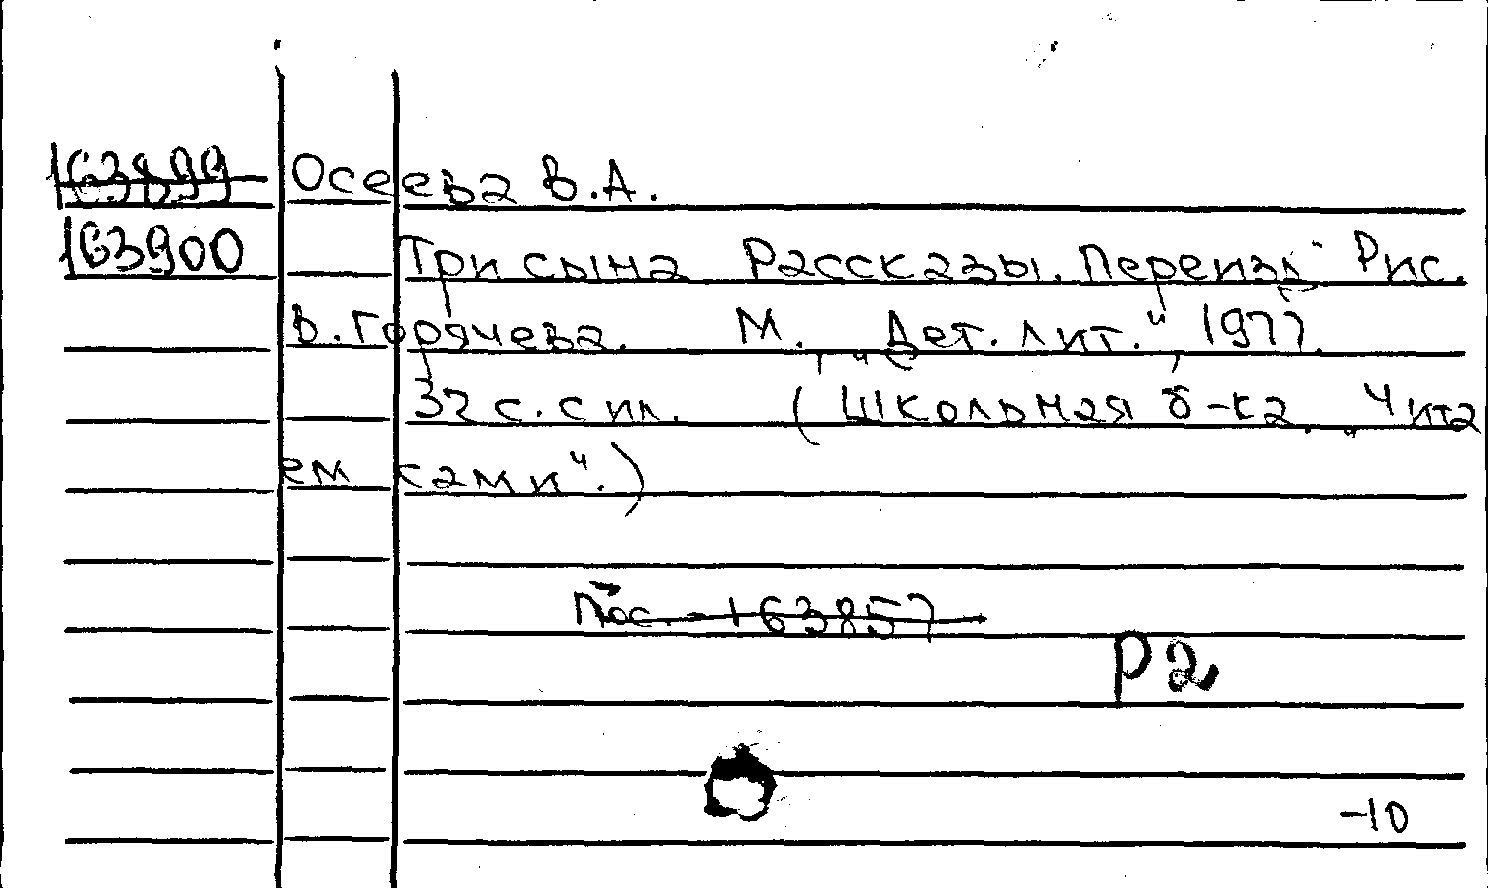 163899 Осеева В.А.
163900 Три сына Рассказы. Переизд. Рис.
В. Горячева. М., „Дет. лит.", 1977.
32 с. с ил. (Школьная б-ка. „Чита
ем сами".)
Пос. - 163857
Р2
-10